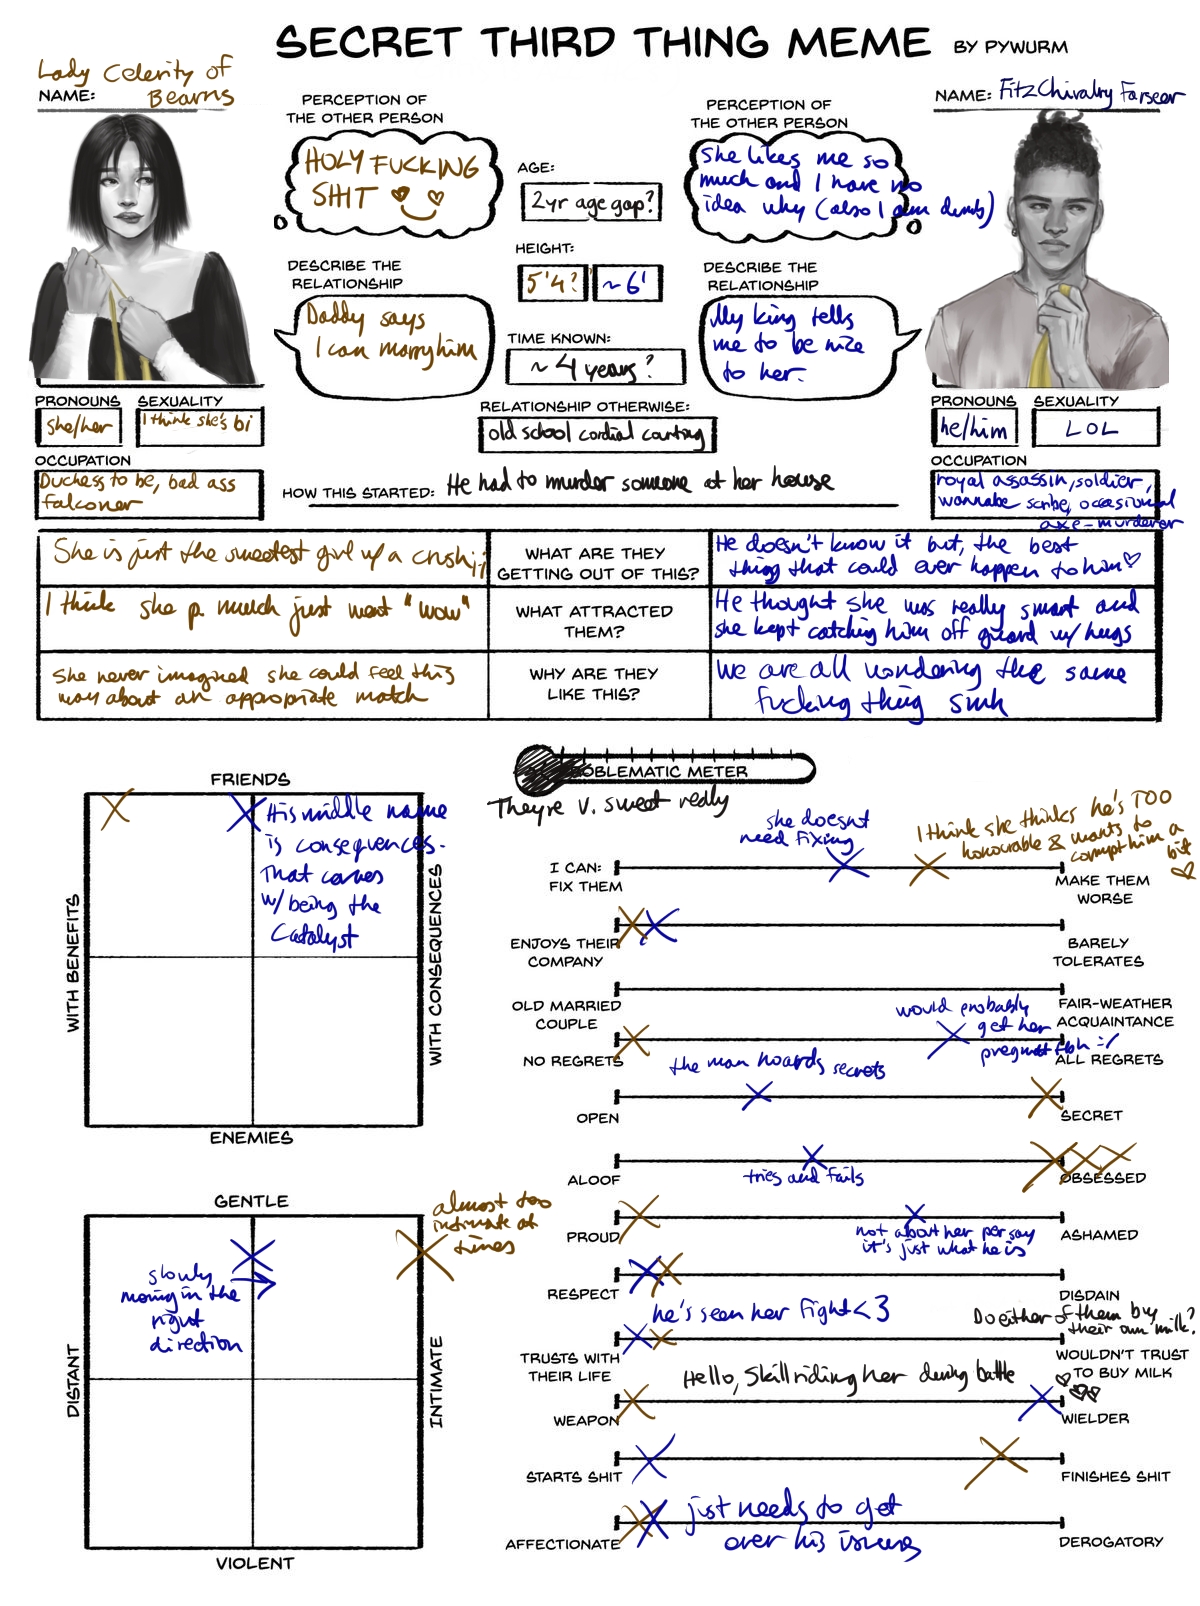 SECRET THIRD THING MEME BY PYWURM
Lady Celerity of
NAME: Bearns
NAME: FitzChivalry Farseer
PERCEPTION OF
THE OTHER PERSON
HOLY FUCKING
SHIT
AGE:
2yr age gap?
HEIGHT:
5'4? ~6'
PERCEPTION OF
THE OTHER PERSON
She likes me so
much and I have no
idea why (also I am dumb)
DESCRIBE THE
RELATIONSHIP
Daddy says
I can marry him
TIME KNOWN:
~4 years?
DESCRIBE THE
RELATIONSHIP
My king tells
me to be nice
to her.
RELATIONSHIP OTHERWISE:
old school cordial courting
PRONOUNS SEXUALITY
she/her I think she's bi
OCCUPATION
Duchess to be, bad ass
falconer
PRONOUNS SEXUALITY
he/him LOL
OCCUPATION
royal assassin, soldier,
wannabe scribe, occasional
axe-murderer
HOW THIS STARTED: He had to murder someone at her house
She is just the sweetest girl w/ a crush;;
WHAT ARE THEY
GETTING OUT OF THIS?
He doesn't know it but, the best
thing that could ever happen to him
I think she p. much just went "wow"
WHAT ATTRACTED
THEM?
He thought she was really smart and
she kept catching him off guard w/ hugs
She never imagined she could feel this
way about an appropriate match
WHY ARE THEY
LIKE THIS?
We are all wondering the same
fucking thing smh
FRIENDS
WITH BENEFITS
WITH CONSEQUENCES
ENEMIES
His middle name
is consequences.
That comes
w/ being the
Catalyst
GENTLE
DISTANT
INTIMATE
VIOLENT
almost too
intimate at
times
slowly
moving in the
right
direction
PROBLEMATIC METER
They're v. sweet really
she doesn't
need fixing
I think she thinks he's TOO
honourable & wants to
corrupt him a
bit
I CAN:
FIX THEM
MAKE THEM
WORSE
ENJOYS THEIR
COMPANY
BARELY
TOLERATES
OLD MARRIED
COUPLE
FAIR-WEATHER
ACQUAINTANCE
would probably
get her
pregnant tbh :/
NO REGRETS
ALL REGRETS
the man hoards secrets
OPEN
SECRET
ALOOF
OBSESSED
tries and fails
PROUD
ASHAMED
not about her per say
it's just what he is
RESPECT
DISDAIN
he's seen her fight <3
Do either of them buy
their own milk?
TRUSTS WITH
THEIR LIFE
WOULDN'T TRUST
TO BUY MILK
Hello, Skillriding her during battle
WEAPON
WIELDER
STARTS SHIT
FINISHES SHIT
just needs to get
over his issues
AFFECTIONATE
DEROGATORY